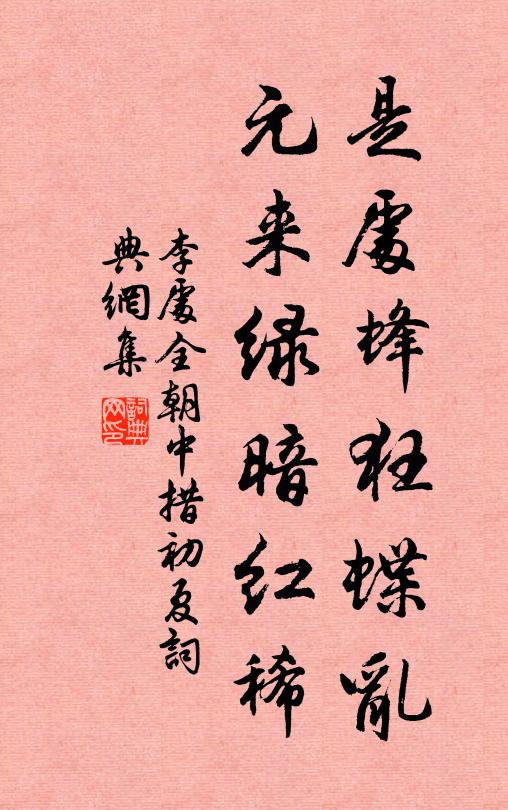 是處蜂狂蝶亂
元来緑暗红稀
李處全朝中措初夏詞
典網集
詞典网印